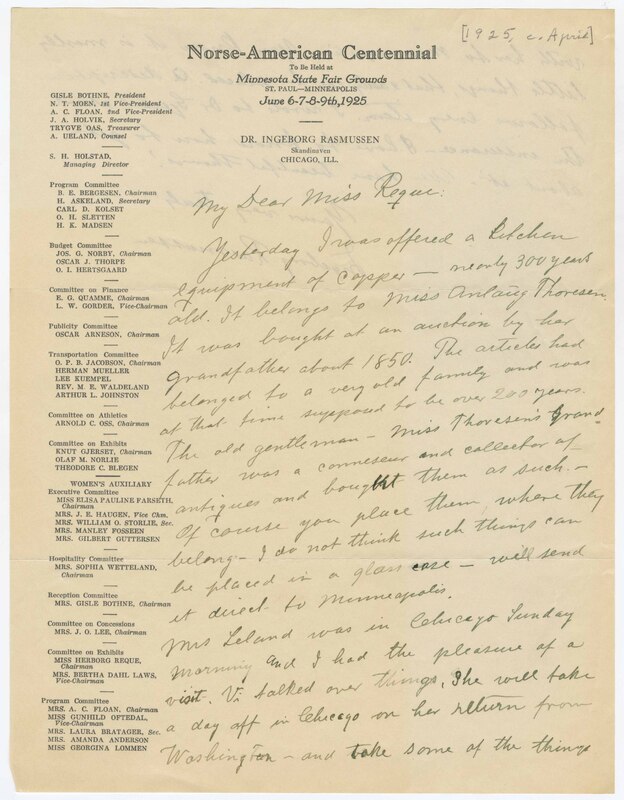 [1925, c. April]
Norse-American Centennial
To Be Held at
Minnesota State Fair Grounds
ST. PAUL—MINNEAPOLIS
June 6-7-8-9th, 1925
DR. INGEBORG RASMUSSEN
Skandinaven
CHICAGO, ILL.
GISLE BOTHNE, President
N. T. MOEN, 1st Vice-President
A. C. FLOAN, 2nd Vice-President
J. A. HOLVIK, Secretary
TRYGVE OAS, Treasurer
A. UELAND, Counsel
S. H. HOLSTAD,
Managing Director
Program Committee
B. E. BERGESEN, Chairman
H. ASKELAND, Secretary
CARL D. KOLSET
O. H. SLETTEN
H. K. MADSEN
Budget Committee
JOS. G. NORBY, Chairman
OSCAR J. THORPE
O. I. HERTSGAARD
Committee on Finance
E. G. QUAMME, Chairman
L. W. GORDER, Vice-Chairman
Publicity Committee
OSCAR ARNESON, Chairman
Transportation Committee
O. P. B. JACOBSON, Chairman
HERMAN MUELLER
LEE KUEMPEL
REV. M. E. WALDELAND
ARTHUR L. JOHNSTON
Committee on Athletics
ARNOLD C. OSS, Chairman
Committee on Exhibits
KNUT GJERSET, Chairman
OLAF M. NORLIE
THEODORE C. BLEGEN
WOMEN'S AUXILIARY
Executive Committee
MISS ELISA PAULINE FARSETH,
Chairman
MRS. J. E. HAUGEN, Vice Chm.
MRS. WILLIAM O. STORLIE, Sec.
MRS. MANLEY FOSSEEN
MRS. GILBERT GUTTERSEN
Hospitality Committee
MRS. SOPHIA WETTELAND,
Chairman
Reception Committee
MRS. GISLE BOTHNE, Chairman
Committee on Concessions
MRS. J. O. LEE, Chairman
Committee on Exhibits
MISS HERBORG REQUE,
Chairman
MRS. BERTHA DAHL LAWS,
Vice-Chairman
Program Committee
MRS. A. C. FLOAN, Chairman
MISS GUNHILD OFTEDAL,
Vice-Chairman
MRS. LAURA BRATAGER, Sec.
MRS. AMANDA ANDERSON
MISS GEORGINA LOMMEN
My Dear Miss Reque:
Yesterday I was offered a kitchen
equipment of copper — nearly 300 years
old. It belongs to Miss Anlaug Thoresen
It was bought at an auction by her
grandfather about 1850. The articles had
belonged to a very old family and was
at that time supposed to be over 200 years.
The old gentleman — Miss Thoresen's grand-
father was a conneseur and collector of
antiques and bought them as such. —
Of course you place them, where they
belong — I do not think such things can
be placed in a glass case — will send
it direct to Minneapolis.
Mrs Leland was in Chicago Sunday
morning and I had the pleasure of a
visit. Vi talked over things. She will take
a day off in Chicago on her return from
Washington — and take some of the things